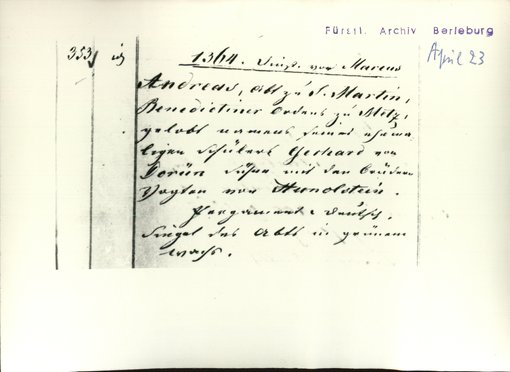 Fürstl. Archiv Berleburg
April 23
353
1364. Dinst. vor Marcus
Andreas, Abt zu S. Martin,
Benedictiner Ordens zu Metz,
gelobt namens seines ehema-
ligen Schülers Gerhard von
Sühne mit den Brüdern
Vogten von Hunolstein.
Pergament. Deutsch.
Siegel des Abts in grünem
Wachs.